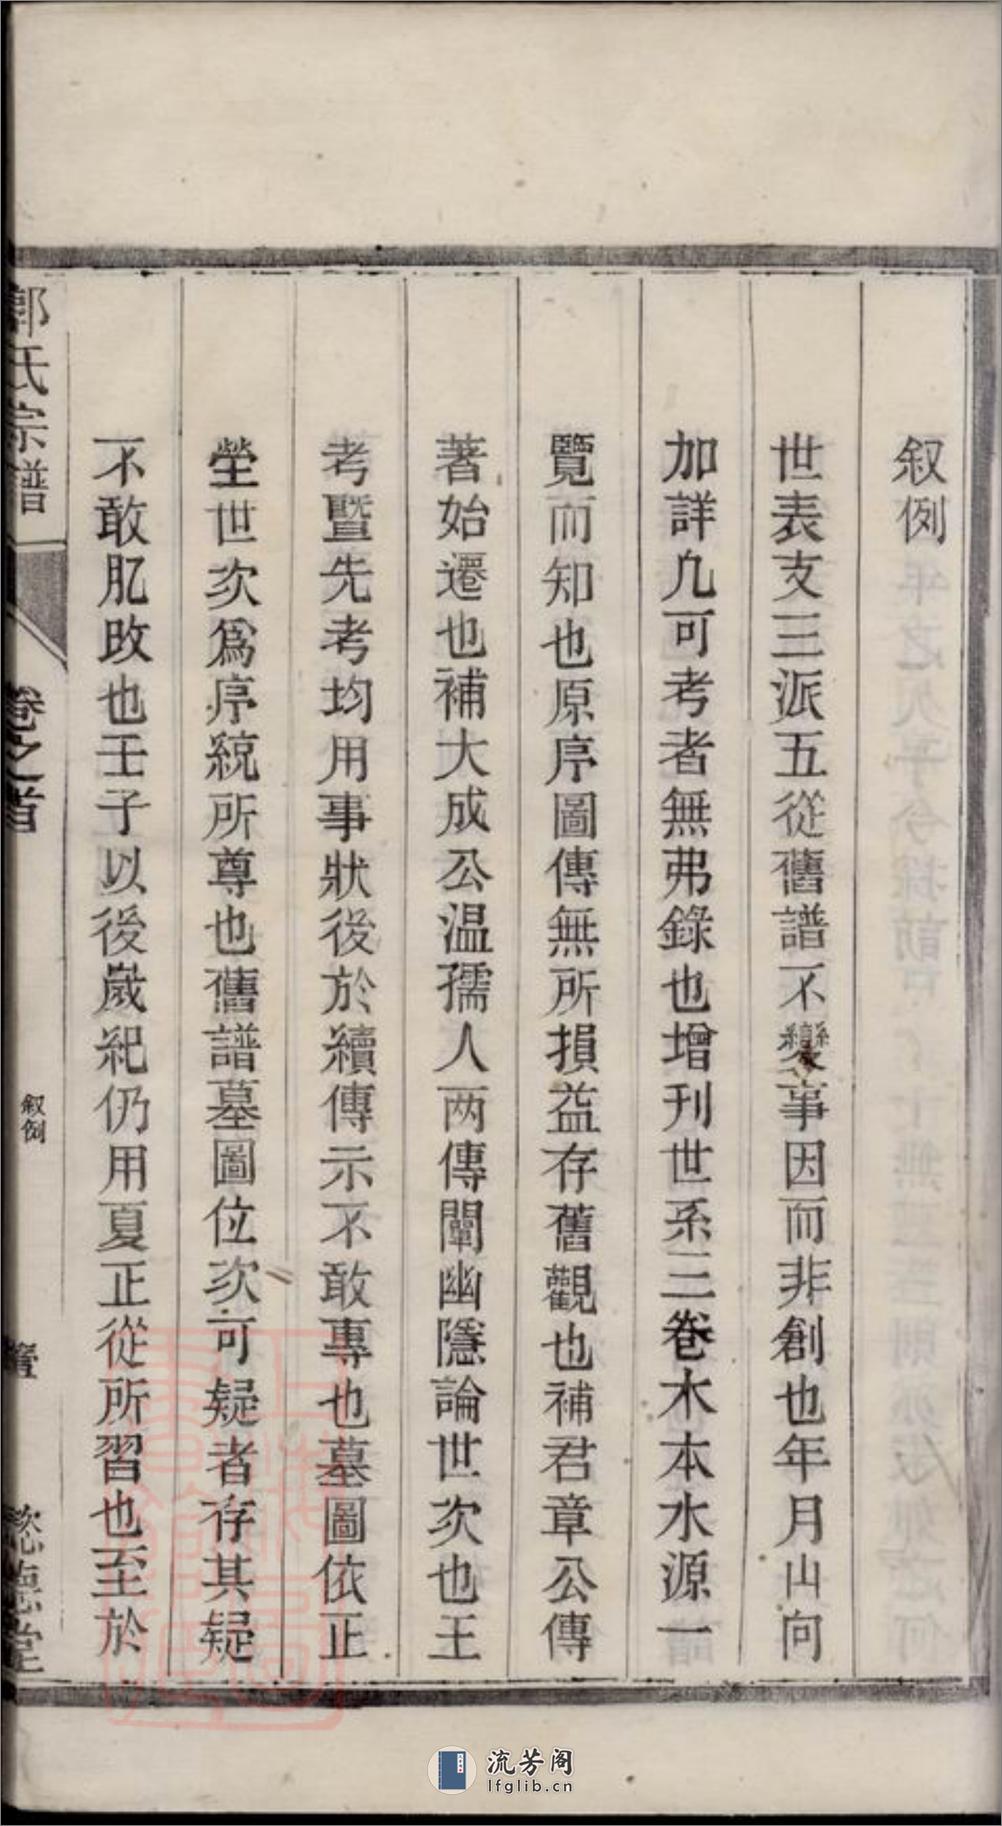 叙例
世表支三派五從舊譜不變事因而非創也年月山向
加詳凡可考者無弗錄也增刊世系三卷木本水源一
覽而知也原序圖傳無所損益存舊觀也補君章公傳
著始遷也補大成公温孺人两傳闡幽隱論世次也王
考暨先考均用事狀後於續傳示不敢專也墓圖依正
塋世次爲序統所尊也舊譜墓圖位次可疑者存其疑
不敢肊改也壬子以後歲紀仍用夏正從所習也至於
郭氏宗譜
卷之首
叙例
流芳阁
lfglib.cn